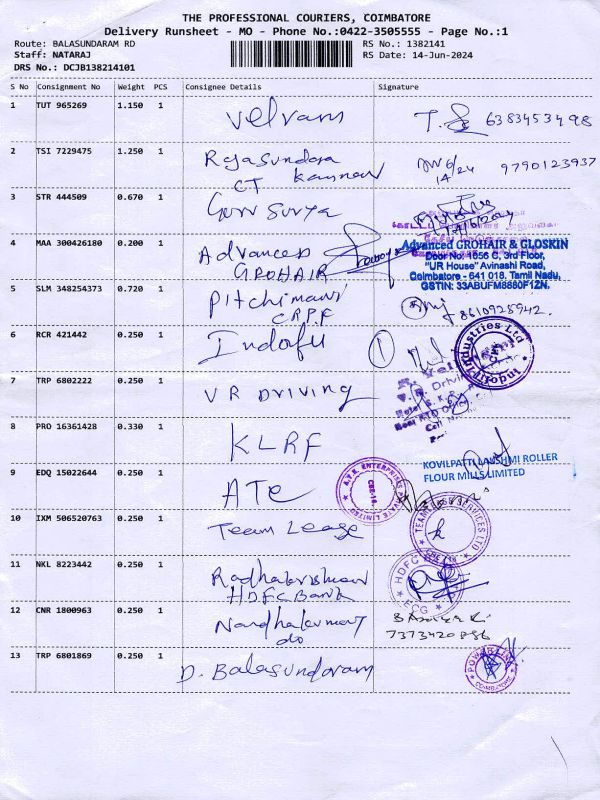 THE PROFESSIONAL COURIERS, COIMBATORE
Delivery Runsheet - MO - Phone No.:0422-3505555 - Page No.:1
Route: BALASUNDARAM RD
RS No.: 1382141
Staff: NATARAJ
RS Date: 14-Jun-2024
DRS No.: DCJB138214101
S No Consignment No Weight PCS Consignee Details Signature
1 TUT 965269 1.150 1 Velvam 6383453498
2 TSI 7229475 1.250 1 Rajasundara 9790123937
CT Kannan
14/6/24
3 STR 444509 0.670 1 Guru Surya
14/6/2024
4 MAA 300426180 0.200 1 Advanced
GROHAIR
Advanced GROHAIR & GLOSKIN
Door No: 1056 C, 3rd Floor,
"UR House" Avinashi Road,
Coimbatore - 641 018. Tamil Nadu,
GSTIN: 33ABUFM8880F1ZN.
5 SLM 348254373 0.720 1 Pitchimani
C.R.P.F
8610928942.
6 RCR 421442 0.250 1 Indofil 1
Indofil Industries Ltd
7 TRP 6802222 0.250 1 VR DRIVING
8 PRO 16361428 0.330 1 KLRF
KOVILPATTI LAKSHMI ROLLER
FLOUR MILLS LIMITED
9 EDQ 15022644 0.250 1 ATE
A.T.E. ENTERPRISES PRIVATE LIMITED
CBE-18.
10 IXM 506520763 0.250 1 Team Lease
TEAM SERVICES LTD
11 NKL 8223442 0.250 1 Radhakrishnan
HDFC Bank
HDFC
12 CNR 1800963 0.250 1 Nandhakumar
do
7373420886
13 TRP 6801869 0.250 1 D. Balasundaram
POWERLINK
COIMBATORE